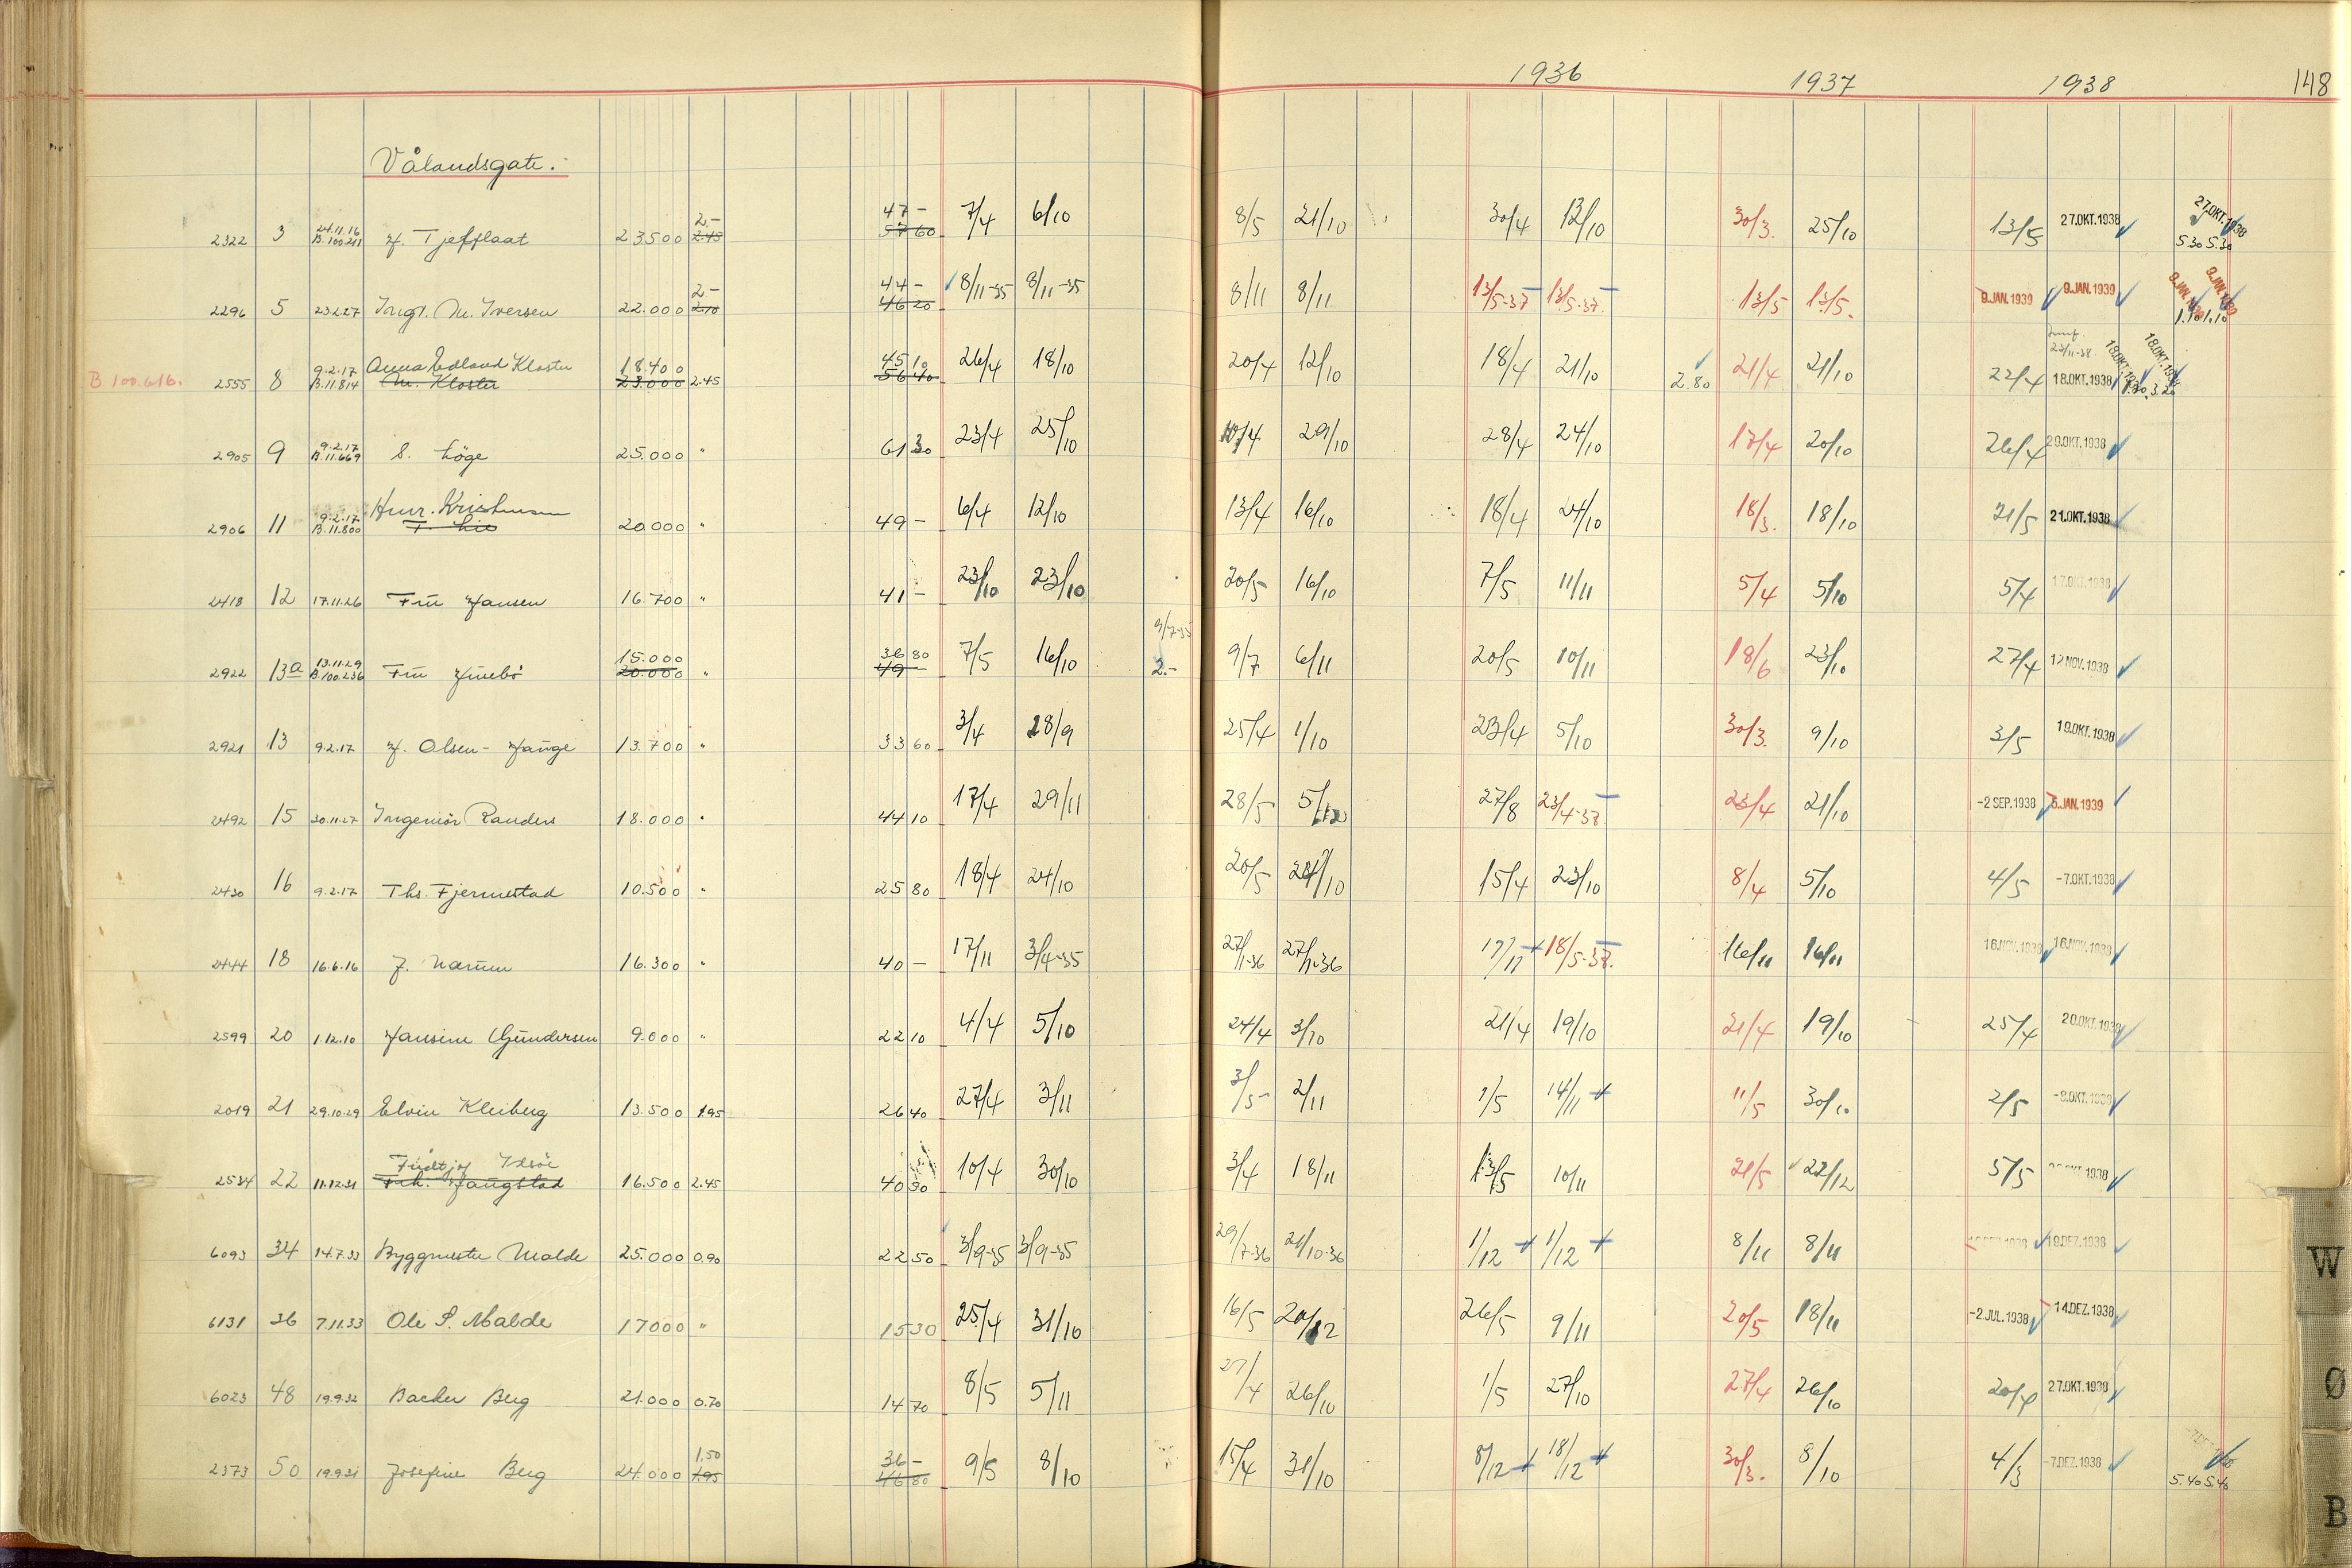 1936 1937 1938 148
Vålandsgate.
2322 3 24.11.16 B.100.211 H. Tjefflaat 23.500 2.- 2.45 47 - 57 60 7/4 6/10 8/5 21/10 30/4 12/10 30/3. 25/10 13/5 27.OKT.1938 27.OKT.1938 5.30 5.30
2296 5 23.2.27 Ingv. M. Iversen 22.000 2- 2.10 44 - 46 20 8/11-35 8/11-35 8/11 8/11 13/5-37 13/5-37. 13/5 13/5. 9.JAN.1939 9.JAN.1939 9.JAN.1939 9.JAN.1939 1.10 1.10
B 100.616. 2555 8 9.2.17 B.11.814 Anna Edland Kloster 18.400 23.000 2.45 45 10 56 40 26/4 18/10 20/4 12/10 18/4 21/10 2.80 21/4 21/10 22/4 18.OKT.1938 23/11-38 18.OKT.1938 18.OKT.1938
2905 9 9.2.17 B.11.669 S. Löge 25.000 " 61 30 23/4 25/10 10/4 29/10 28/4 24/10 17/4 20/10 26/4 20.OKT.1938
2906 11 9.2.17 B.11.800 Henr. Kristensen T. Lie 20.000 " 49 - 6/4 12/10 13/4 16/10 18/4 24/10 18/3. 18/10 21/5 21.OKT.1938
2418 12 17.11.26 Fru Hansen 16.700 " 41 - 23/10 23/10 20/5 16/10 7/5 11/11 5/4 5/10 5/4 17.OKT.1938
2922 13a 13.11.29 B.100.236 Fru Hinebö 15.000 20.000 " 36 80 49 - 7/5 16/10 9/7-35 2.- 9/7 6/11 20/5 10/11 18/6 23/10 27/4 12 NOV.1938
2921 13 9.2.17 H. Olsen - Hauge 13.700 " 33 60 3/4 28/9 25/4 1/10 23/4 5/10 30/3. 9/10 3/5 19.OKT.1938
2492 15 30.11.27 Ingeniör Randers 18.000 " 44 10 17/4 29/11 28/5 5/12 27/8 23/4-37. 23/4 21/10 -2 SEP.1938 5.JAN.1939
2430 16 9.2.17 Ths. Fjermestad 10.500 " 25 80 18/4 24/10 20/5 24/10 15/4 23/10 8/4 5/10 4/5 -7.OKT.1938
2444 18 16.6.16 J. Narum 16.300 " 40 - 17/11 3/4-35 27/11-36 27/11-36 17/11 18/5-37. 16/11 16/11 16.NOV.1938 16.NOV.1938
2599 20 1.12.10 Hansine Gundersen 9.000 " 22 10 4/4 5/10 24/4 3/10 21/4 19/10 21/4 19/10 25/4 20.OKT.1938
2019 21 29.10.29 Elvin Kleiberg 13.500 1.95 26 40 27/4 3/11 3/5 2/11 1/5 14/11 11/5 30/10 2/5 -8.OKT.1938
2534 22 11.12.31 Haugstad 16.500 2.45 40 30 10/4 30/10 3/4 18/11 13/5 10/11 21/5 22/12 5/5 1938
6093 34 14.7.33 Byggmester Malde 25.000 0.90 22 50 3/9-35 3/9-35 29/7-36 21/10-36 1/12 1/12 8/11 8/11 19.DEZ.1938
6131 36 7.11.33 Ole P. Malde 17000 " 15 30 25/4 31/10 16/5 20/12 26/5 9/11 20/5 18/11 -2.JUL.1938 14.DEZ.1938
6023 48 19.9.32 Backer Berg 21.000 0.70 14 70 8/5 5/11 27/4 26/10 1/5 27/10 27/4 26/10 20/4 27.OKT.1938
2373 50 19.9.31 Josefine Berg 24.000 1.50 1.95 36 - 46 80 9/5 8/10 15/4 31/10 8/12 18/12 30/3. 8/10 4/3 -7.DEZ.1938 5.40 5.40
W
Ø
B